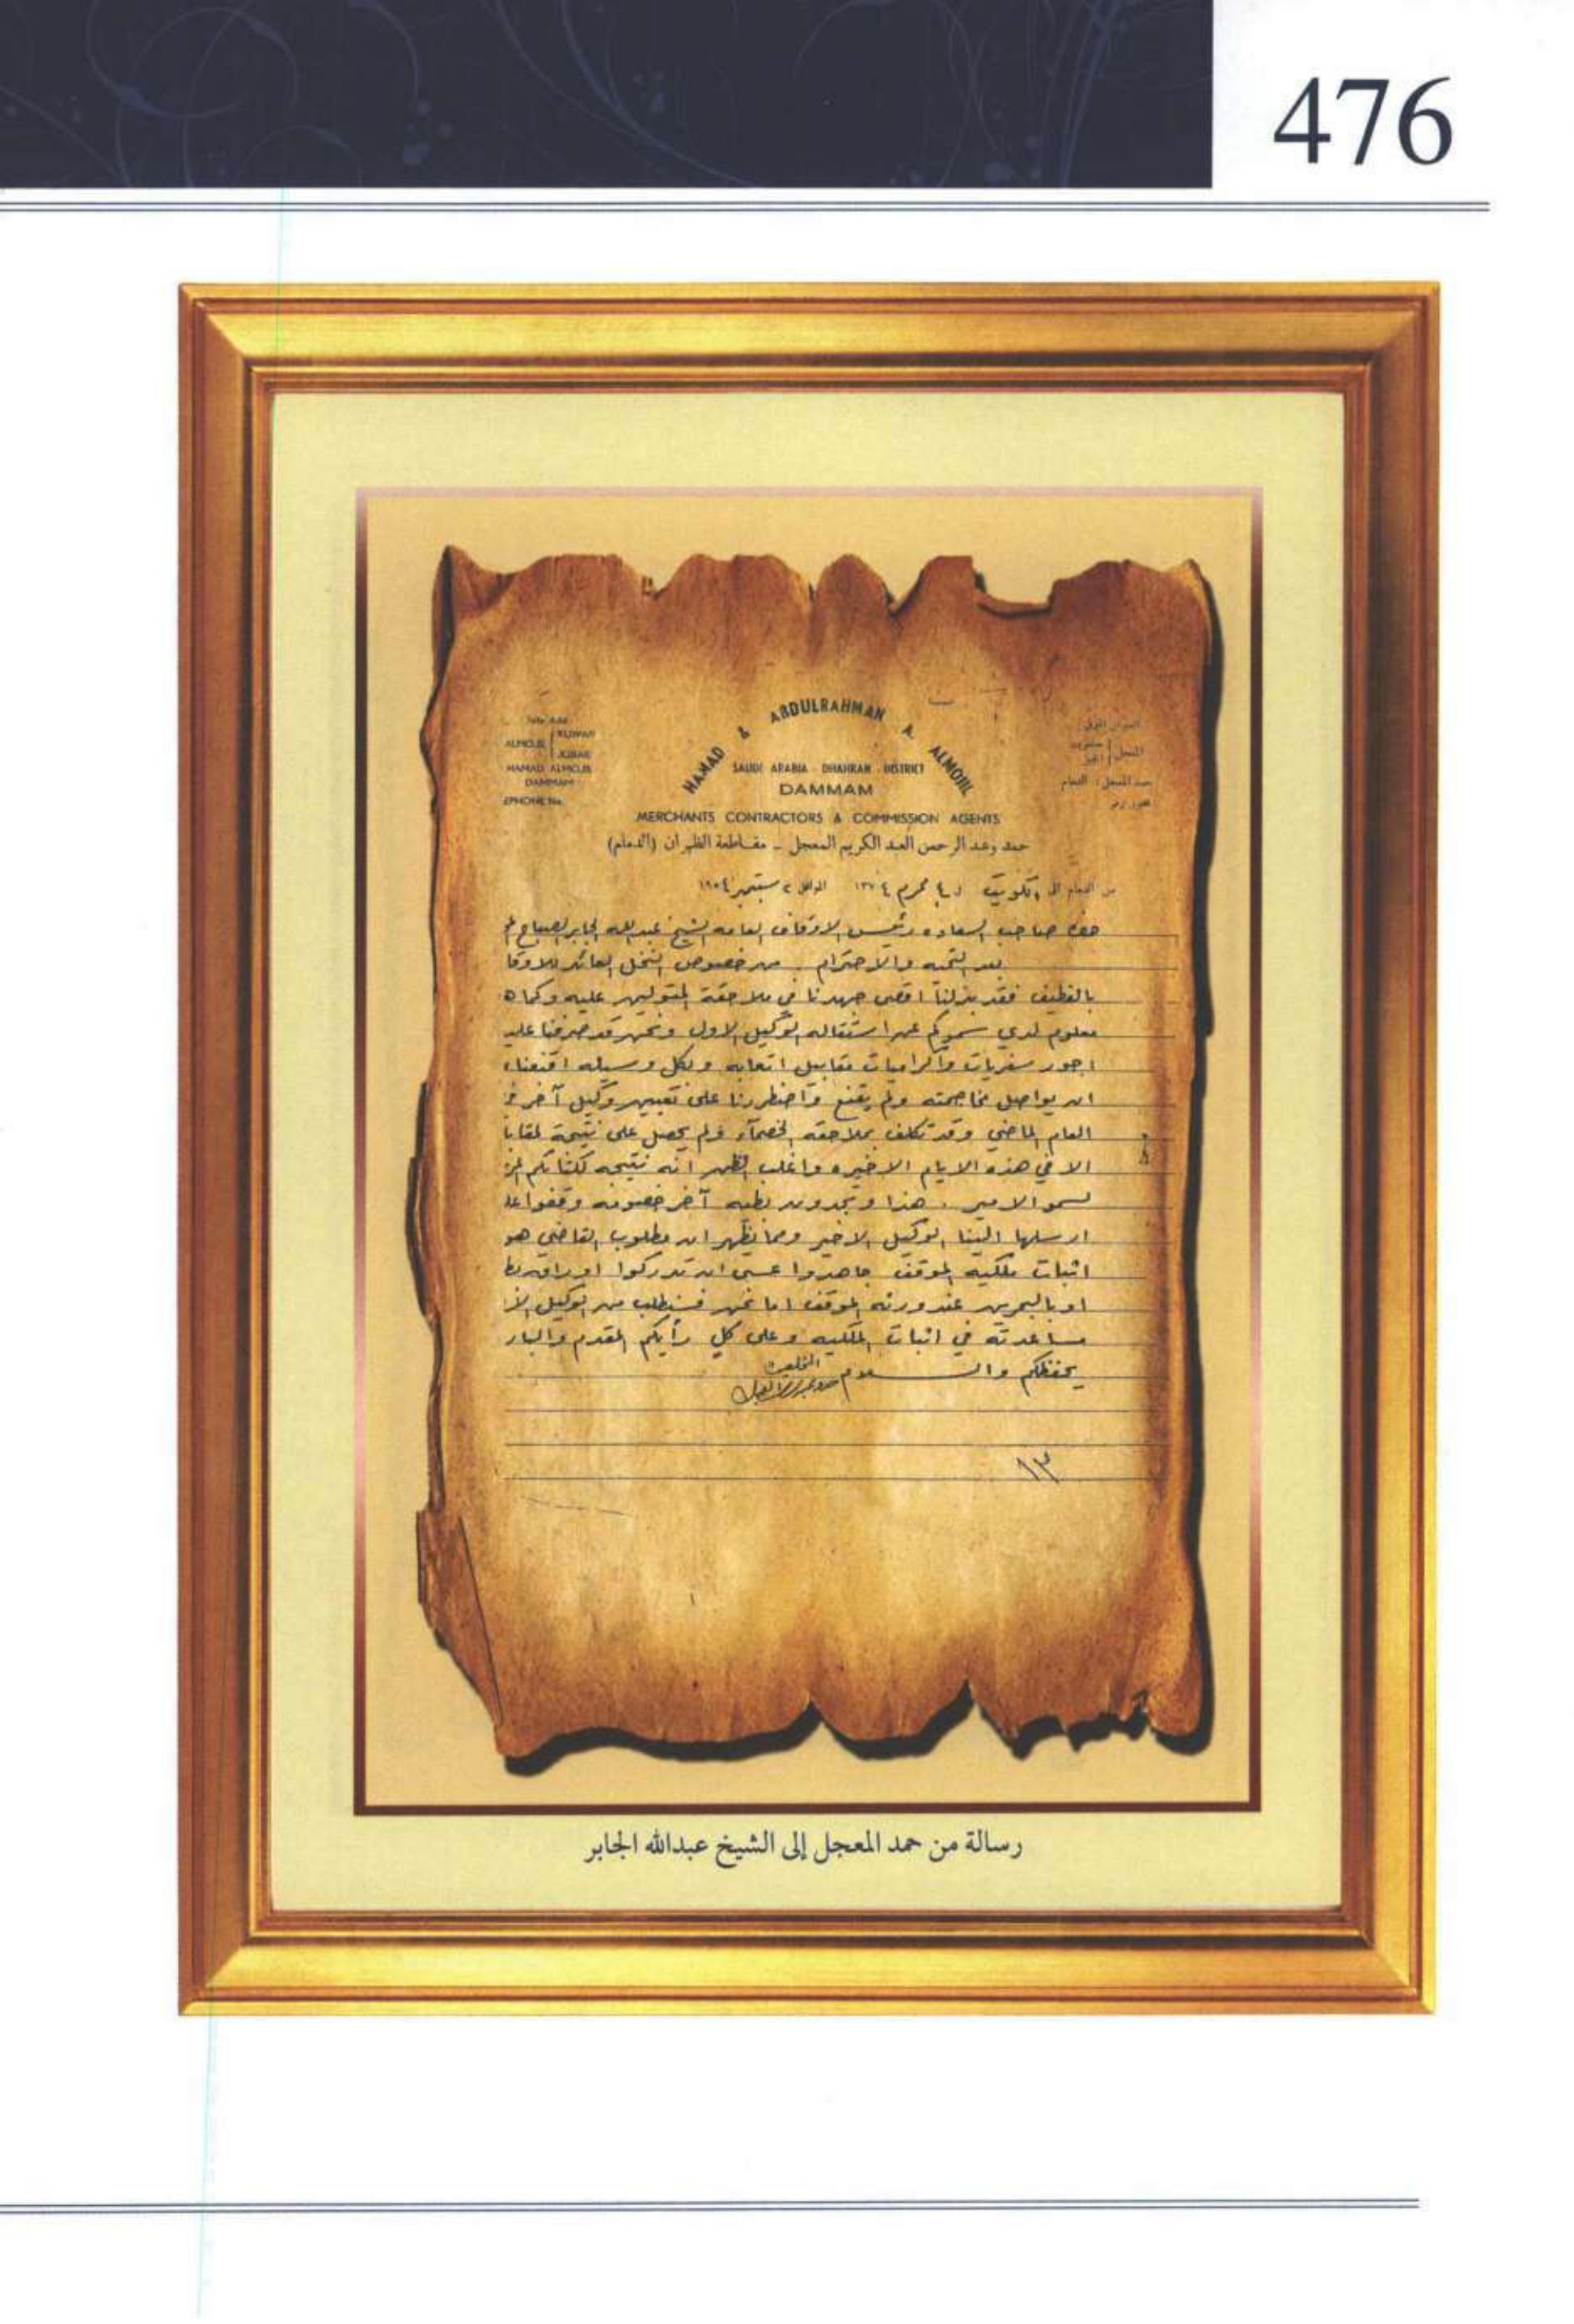 476
HAMAD & ABDULRAHMAN A. ALMOJIL
SAUDI ARABIA - DHAHRAN - DISTRICT
DAMMAM
MERCHANTS CONTRACTORS & COMMISSION AGENTS
ALMOJIL KUWAIT JUBAIL
HAMAD ALMOJIL
DAMMAM
EPHONE No.
حمد وعبد الرحمن العبد الكريم المعجل – مقاطعة الظهران (الدمام)
من الدمام الى الكويت ٤ محرم ١٣٧٤ الموافق ٢ سبتمبر ١٩٥٤
صاحب السعاده رئيس الاوقاف العامه الشيخ عبدالله الجابر الصباح
بعد التحيه والاحترام . من خصوص النخل العائد للاوقا
بالقطيف فقد بذلنا اقصى جهدنا في ملاحقة المتولين عليه وكما ه
معلوم لدى سموكم عن استقاله الوكيل الاول ونحن قد صرفنا عليه
اجور سفريات واكراميات مقابل اتعابه وبكل وسيله اقنعناه
ان يواصل مخاصمته ولم يقنع واضطررنا على تعيين وكيل آخر
العام الماضي وقد تكلف بملاحقه الخصمآء ولم يحصل على نتيجة
الا في هذه الايام الاخيره واغلب الظن انه نتيجه لكتابكم
لسمو الامير . هذا وتجدون بطيه آخر
ارسلها الينا الوكيل الاخير ومما يظهر ان مطلوب القاضي هو
اثبات ملكيه الموقف جاهدوا عسى ان تدركوا اوراق
او بالبحرين عند ورثه الموقف اما نحن فسنطلب من الوكيل
مساعدته في اثبات الملكيه وعلى كل رأيكم المقدم والبار
يحفظكم والسلام
١٣
رسالة من حمد المعجل إلى الشيخ عبدالله الجابر